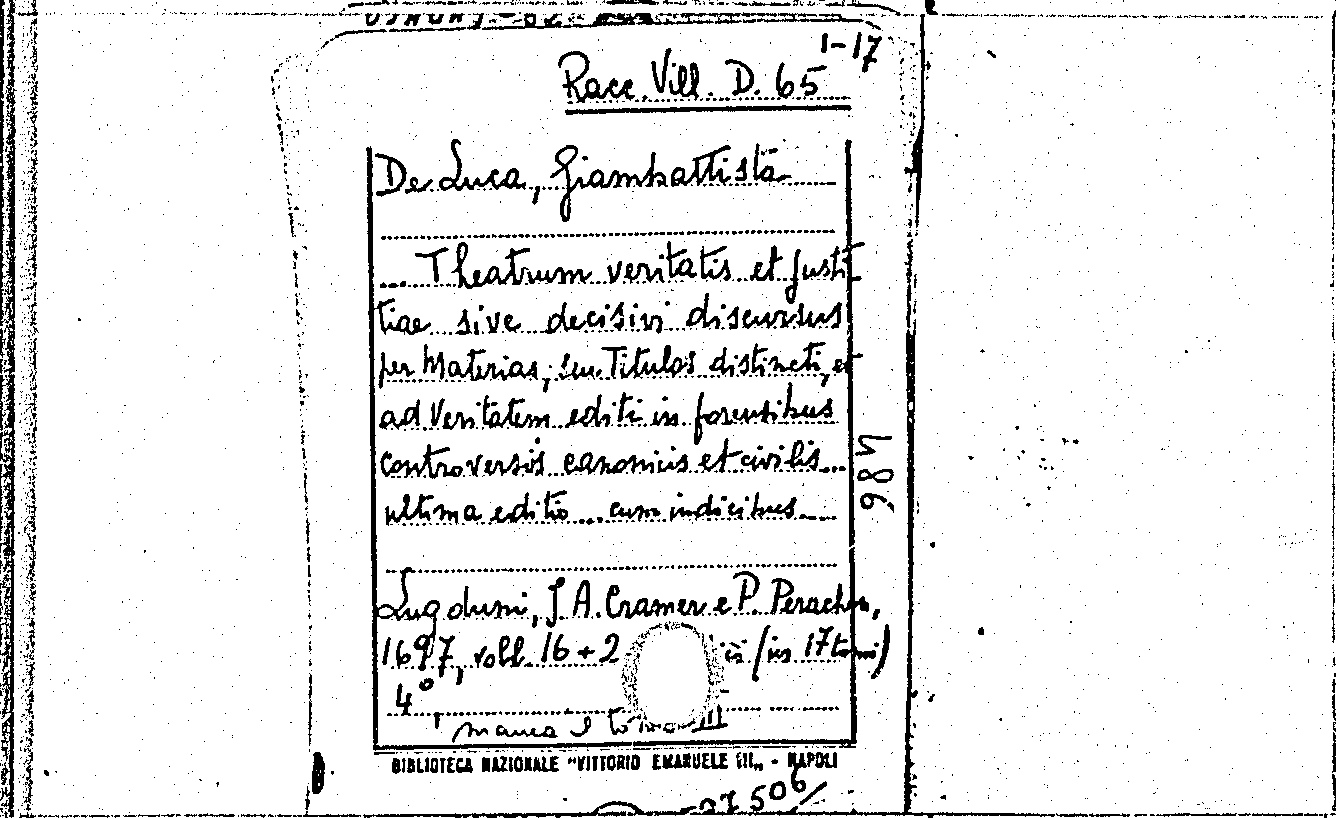 1-17
Racc. Vill. D. 65
De Luca, Giambattista
... Theatrum veritatis et justi-
tiae sive decisivi discursus
per Materias, seu Titulos distincti, et
ad Veritatem editi in forensibus
controversis canonicis et civilis...
ultima editio ... cum indicibus...
986
Lugduni, J. A. Cramer e P. Perachon,
1697, voll. 16 + 2 (in 17 tomi)
4°,
manca il tomo III
BIBLIOTECA NAZIONALE "VITTORIO EMANUELE III„ - NAPOLI